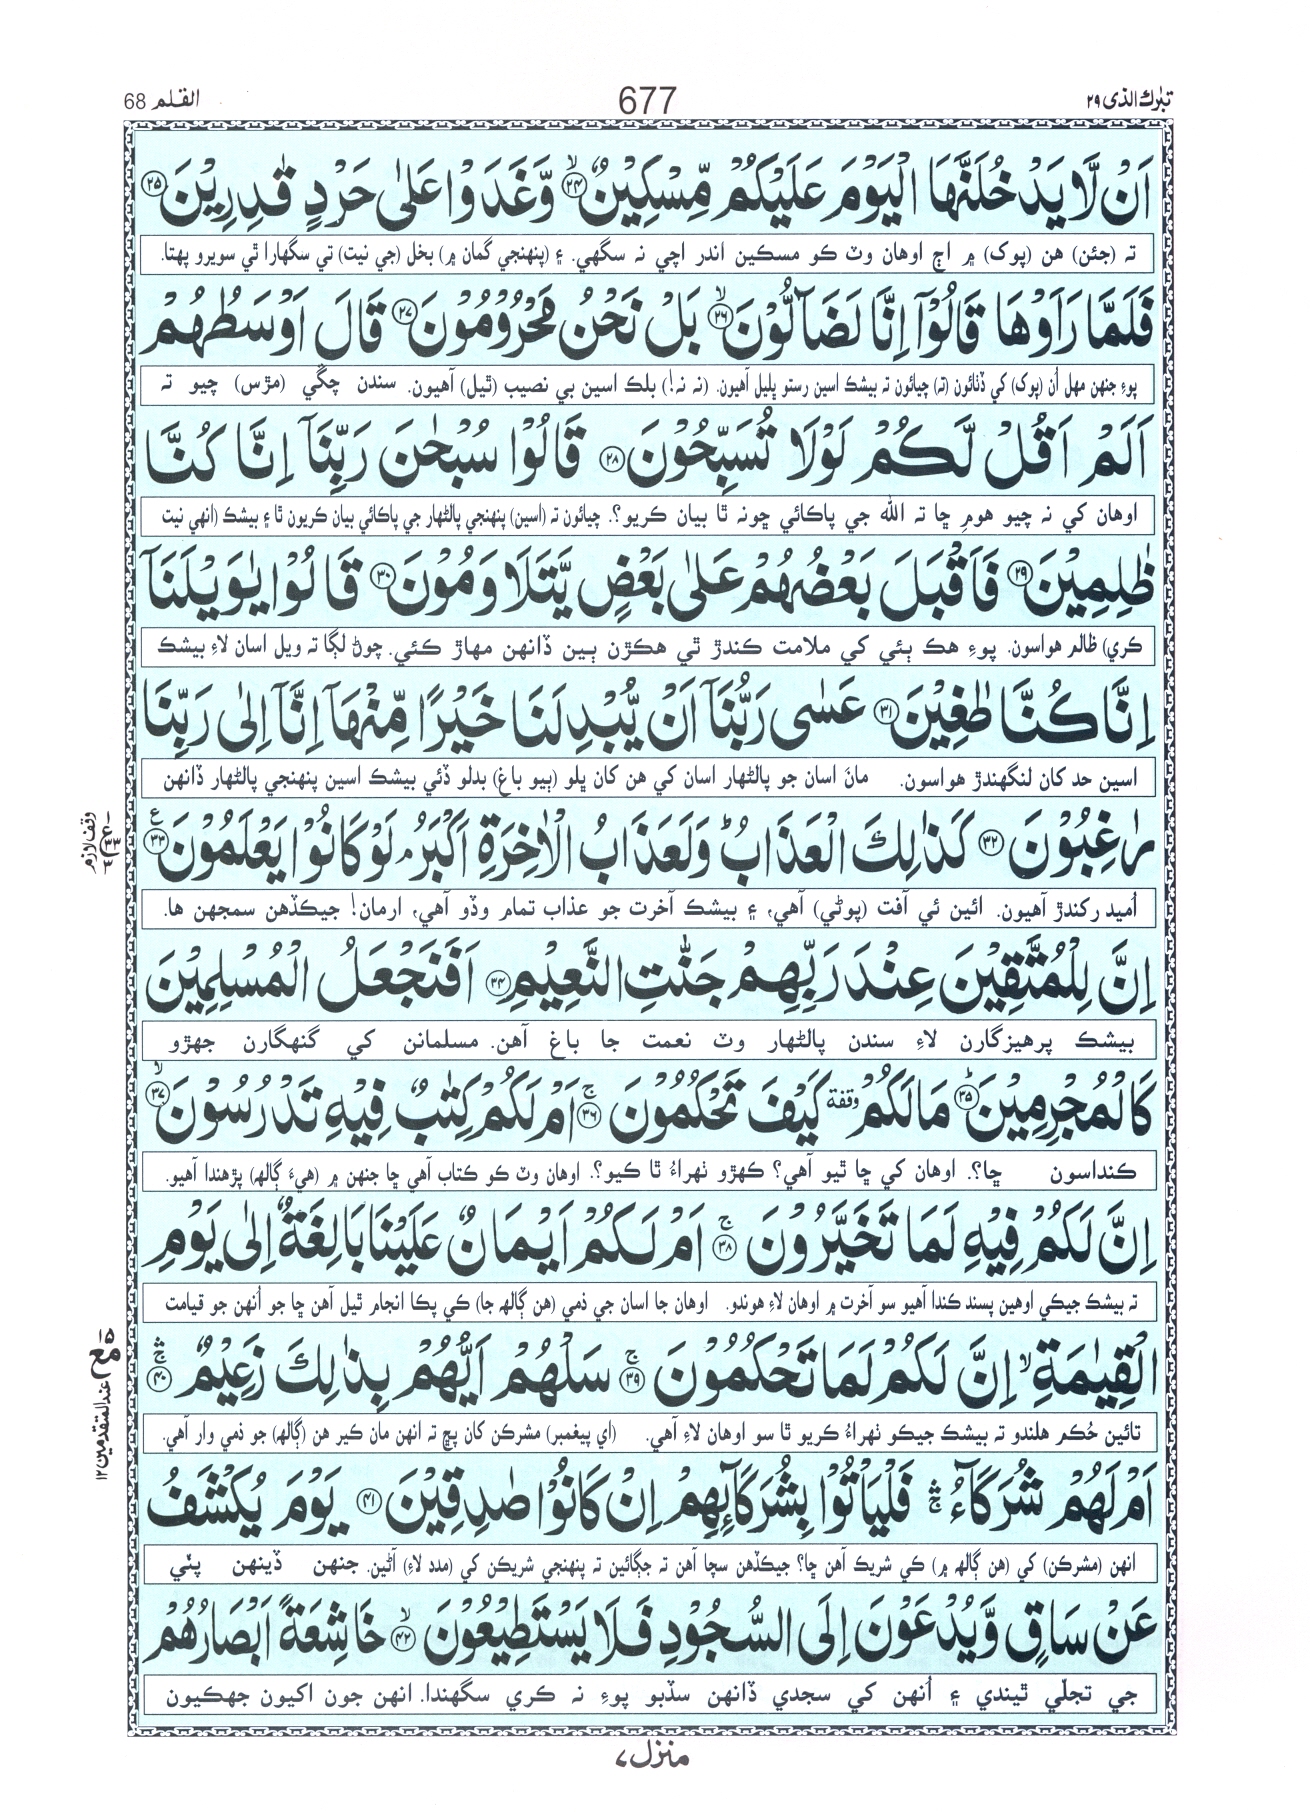 تبٰرك الذى ٢٩
677
القلم 68
اَنْ لَّا يَدْخُلَنَّهَا الْيَوْمَ عَلَيْكُمْ مِّسْكِيْنٌ ۙ﴿٢٤﴾ وَّغَدَوْا عَلٰى حَرْدٍ قٰدِرِيْنَ ﴿٢٥﴾
ته (جئن) هن (پوک) ۾ اڄ اوهان وٽ ڪو مسڪين اندر اچي نه سگهي. ۽ (پنهنجي گمان ۾) بخل (جي نيت) تي سگهارا ٿي سويرو پهتا.
فَلَمَّا رَاَوْهَا قَالُوْٓا اِنَّا لَضَآلُّوْنَ ۙ﴿٢٦﴾ بَلْ نَحْنُ مَحْرُوْمُوْنَ ﴿٢٧﴾ قَالَ اَوْسَطُهُمْ
پوءِ جنهن مهل اُن (پوک) کي ڏٺائون (ته) چيائون ته بيشڪ اسين رستو ڀليل آهيون. (نه نه!) بلڪ اسين بي نصيب (ٿيل) آهيون. سندن چڱي (مڙس) چيو ته
اَلَمْ اَقُلْ لَّكُمْ لَوْلَا تُسَبِّحُوْنَ ﴿٢٨﴾ قَالُوْا سُبْحٰنَ رَبِّنَآ اِنَّا كُنَّا
اوهان کي نه چيو هومِ ڇا ته الله جي پاڪائي ڇونه ٿا بيان ڪريو؟. چيائون ته (اسين) پنهنجي پالڻهار جي پاڪائي بيان ڪريون ٿا ۽ بيشڪ (انهي نيت
ظٰلِمِيْنَ ﴿٢٩﴾ فَاَقْبَلَ بَعْضُهُمْ عَلٰى بَعْضٍ يَّتَلَاوَمُوْنَ ﴿٣٠﴾ قَالُوْا يٰوَيْلَنَآ
ڪري) ظالم هواسون. پوءِ هڪ ٻئي کي ملامت ڪندڙ ٿي هڪڙن ٻين ڏانهن مهاڙ ڪئي. چوڻ لڳا ته ويل اسان لاءِ بيشڪ
اِنَّا كُنَّا طٰغِيْنَ ﴿٣١﴾ عَسٰى رَبُّنَآ اَنْ يُّبْدِلَنَا خَيْرًا مِّنْهَآ اِنَّآ اِلٰى رَبِّنَا
اسين حد کان لنگهندڙ هواسون. مان اسان جو پالڻهار اسان کي هن کان ڀلو (ٻيو باغ) بدلو ڏئي بيشڪ اسين پنهنجي پالڻهار ڏانهن
رٰغِبُوْنَ ﴿٣٢﴾ كَذٰلِكَ الْعَذَابُ ؕ وَلَعَذَابُ الْاٰخِرَةِ اَكْبَرُ ۘ لَوْ كَانُوْا يَعْلَمُوْنَ ﴿٣٣﴾
وقف لازم
اُميد رکندڙ آهيون. ائين ئي آفت (پوڻي) آهي، ۽ بيشڪ آخرت جو عذاب تمام وڏو آهي، ارمان! جيڪڏهن سمجهن ها.
اِنَّ لِلْمُتَّقِيْنَ عِنْدَ رَبِّهِمْ جَنّٰتِ النَّعِيْمِ ﴿٣٤﴾ اَفَنَجْعَلُ الْمُسْلِمِيْنَ
بيشڪ پرهيزگارن لاءِ سندن پالڻهار وٽ نعمت جا باغ آهن. مسلمانن کي گنهگارن جهڙو
كَالْمُجْرِمِيْنَ ؕ﴿٣٥﴾ مَا لَكُمْ وقفة كَيْفَ تَحْكُمُوْنَ ۚ﴿٣٦﴾ اَمْ لَكُمْ كِتٰبٌ فِيْهِ تَدْرُسُوْنَ ۙ﴿٣٧﴾
ڪنداسون ڇا؟. اوهان کي ڇا ٿيو آهي؟ ڪهڙو ٺهراءُ ٿا ڪيو؟. اوهان وٽ ڪو ڪتاب آهي ڇا جنهن ۾ (هيءَ ڳالهه) پڙهندا آهيو.
اِنَّ لَكُمْ فِيْهِ لَمَا تَخَيَّرُوْنَ ۚ﴿٣٨﴾ اَمْ لَكُمْ اَيْمَانٌ عَلَيْنَا بَالِغَةٌ اِلٰى يَوْمِ
ته بيشڪ جيڪي اوهين پسند ڪندا آهيو سو آخرت ۾ اوهان لاءِ هوندو. اوهان جا اسان جي ذمي (هن ڳالهه جا) کي پڪا انجام ٿيل آهن ڇا جو اُنهن جو قيامت
الْقِيٰمَةِ ۙ اِنَّ لَكُمْ لَمَا تَحْكُمُوْنَ ۚ﴿٣٩﴾ سَلْهُمْ اَيُّهُمْ بِذٰلِكَ زَعِيْمٌ ﴿٤٠﴾
مع عند المتقدمين ١٢
تائين حُڪم هلندو ته بيشڪ جيڪو ٺهراءُ ڪريو ٿا سو اوهان لاءِ آهي. (اي پيغمبر) مشرڪن کان پڇ ته انهن مان ڪير هن (ڳالهه) جو ذمي وار آهي.
اَمْ لَهُمْ شُرَكَآءُ ۛۚ فَلْيَاْتُوْا بِشُرَكَآئِهِمْ اِنْ كَانُوْا صٰدِقِيْنَ ﴿٤١﴾ يَوْمَ يُكْشَفُ
انهن (مشرڪن) کي (هن ڳالهه ۾) کي شريڪ آهن ڇا؟ جيڪڏهن سچا آهن ته جڳائين ته پنهنجي شريڪن کي (مدد لاءِ) آڻين. جنهن ڏينهن پِنّي
عَنْ سَاقٍ وَّيُدْعَوْنَ اِلَى السُّجُوْدِ فَلَا يَسْتَطِيْعُوْنَ ۙ﴿٤٢﴾ خَاشِعَةً اَبْصَارُهُمْ
جي تجلّي ٿيندي ۽ اُنهن کي سجدي ڏانهن سڏبو پوءِ نه ڪري سگهندا. انهن جون اکيون جهڪيون
منزل ٧